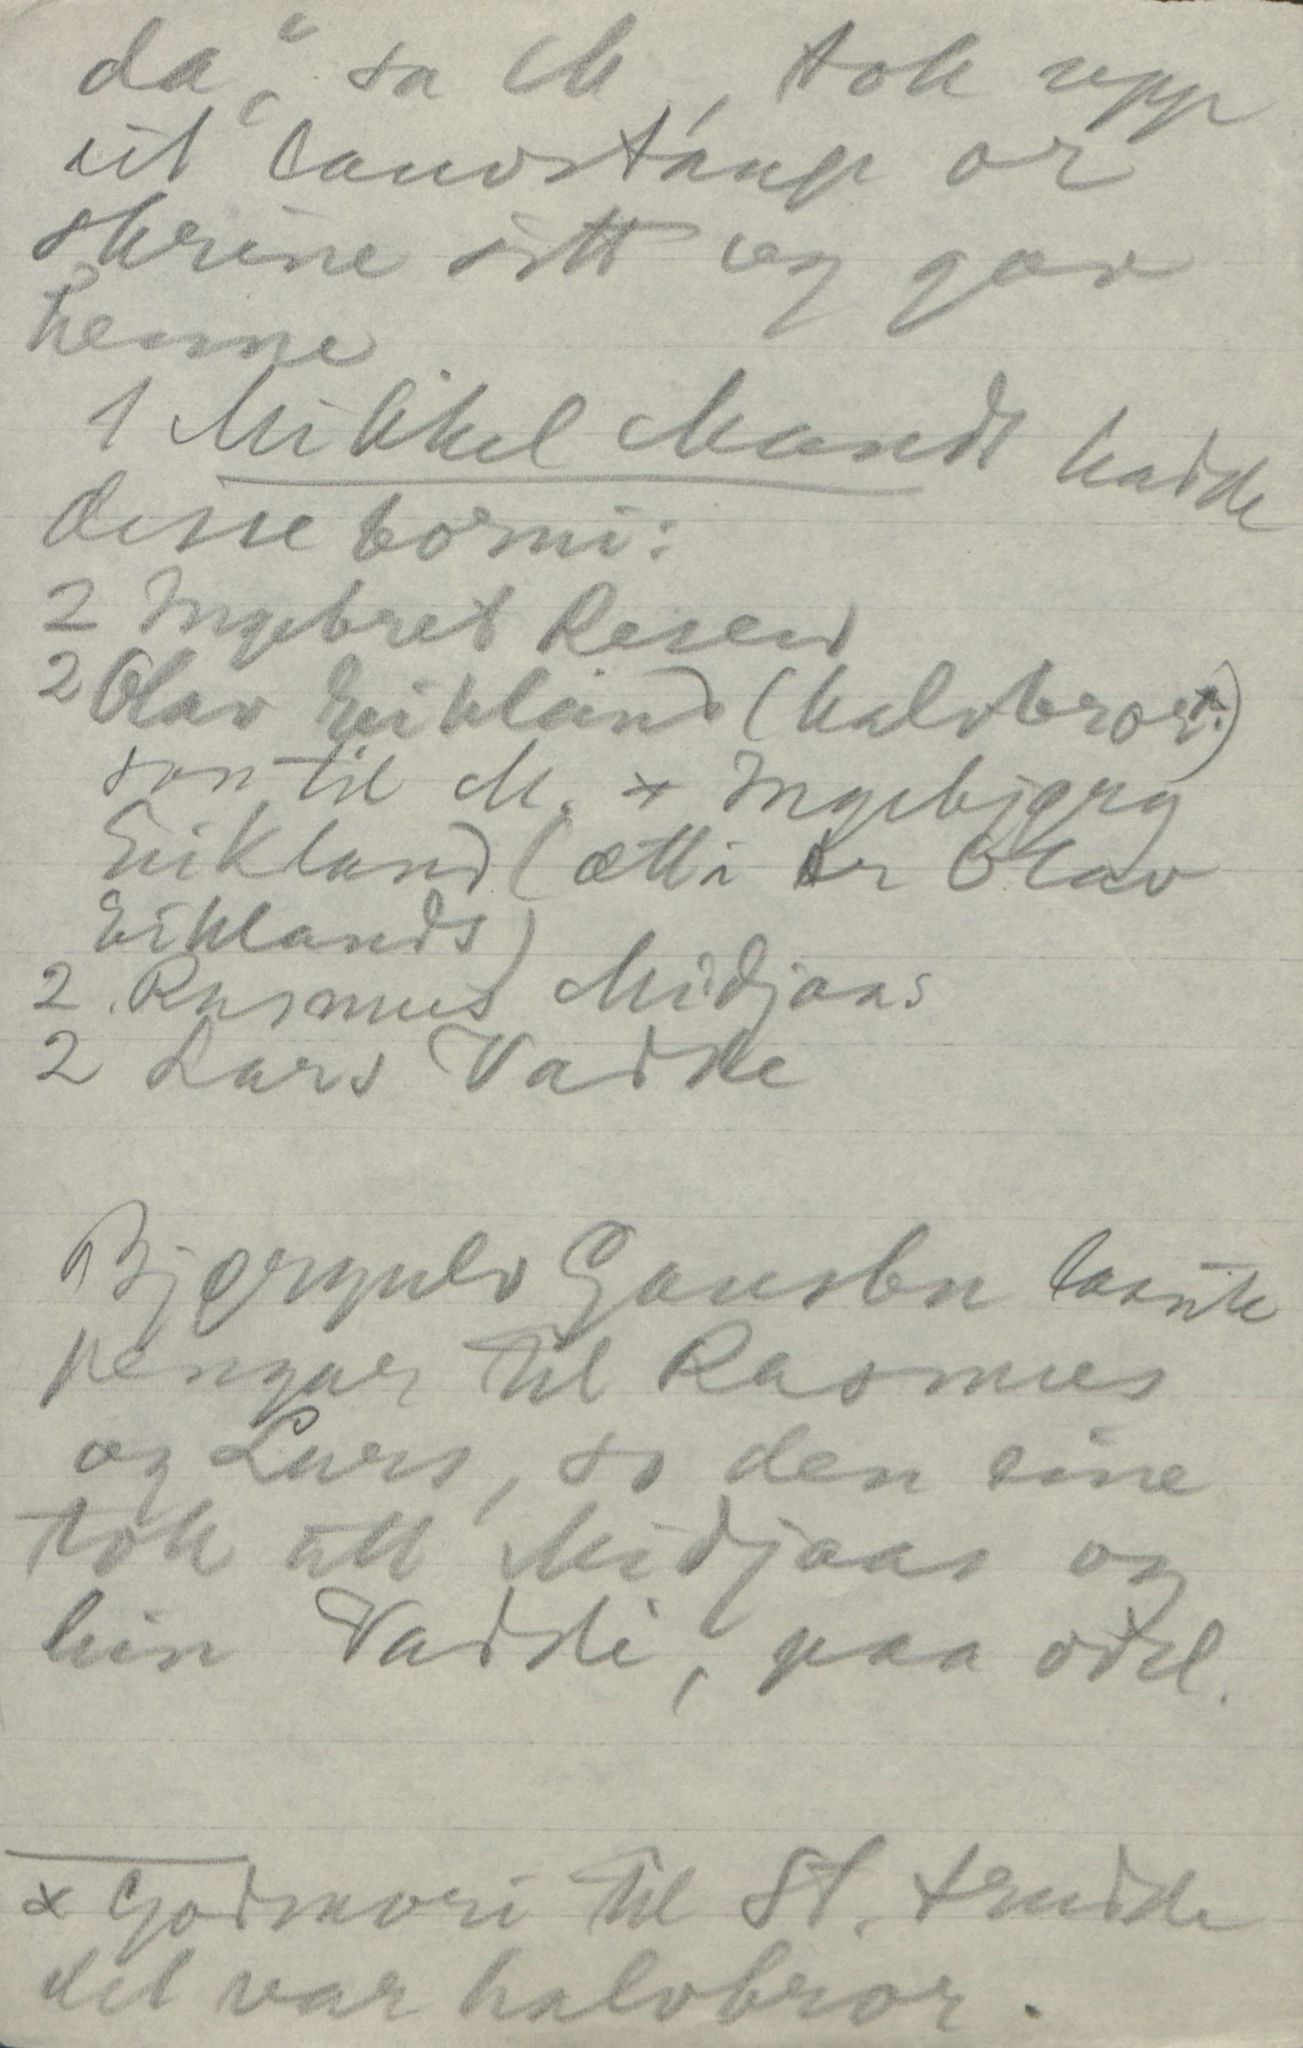 da," sa M, tok upp
eit laust 
skrine sitt og gav
henne
1 Mikkel Mandt hadde
desse borni:
2 Ingebret Resen
2 Olav Eikland (halvbror x)
son til M. + Ingebjørg
Eikland (ætti er Olav
Eiklands)
2. Rasmus Midjaas
2 Lars Vadde
Bjørgulv Gausbu laante
pengar til Rasmus
og Lars, so den eine
tok att Midjaas og
hin Vaddi, paa odel.
x Godmori til St. trudde
det var halvbror.